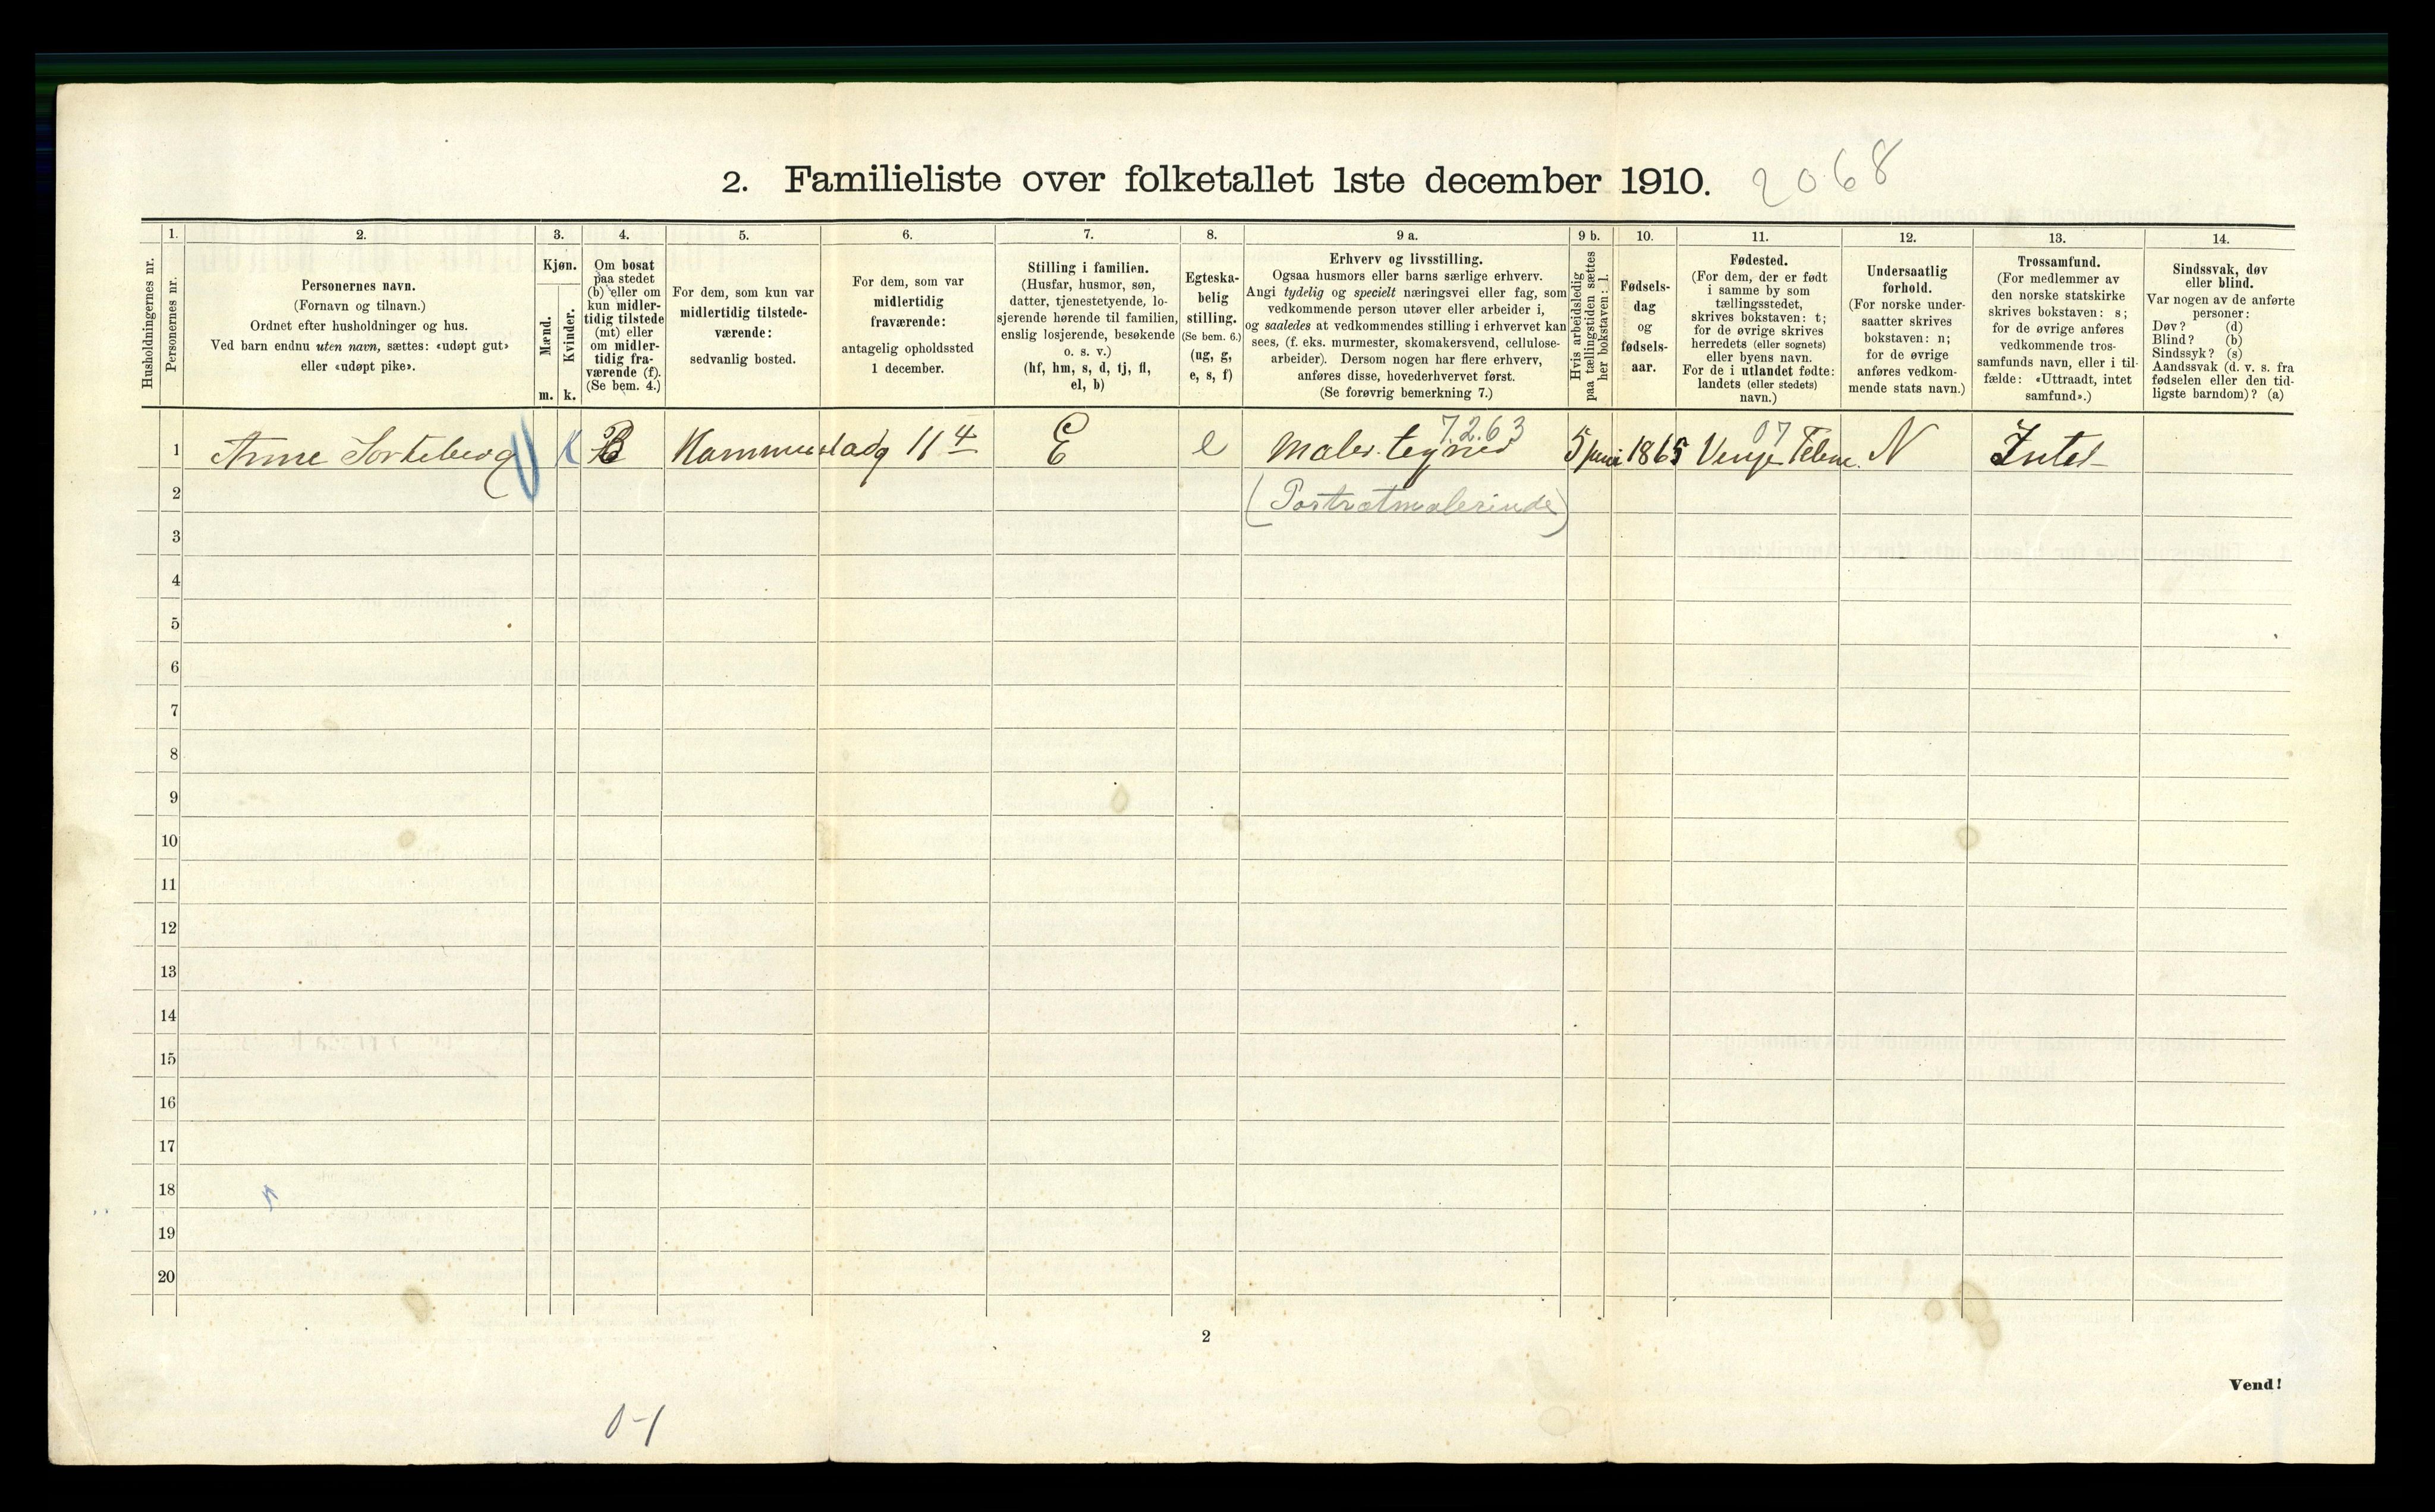 2. Familieliste over folketallet 1ste december 1910. 2068
Husholdningernes nr.
1.
Personernes nr.
2.
Personernes navn.
(Fornavn og tilnavn.)
Ordnet efter husholdninger og hus.
Ved barn endnu uten navn, sættes: «udøpt gut»
eller «udøpt pike».
3.
Kjøn.
Mænd.
Kvinder.
m. k.
4.
Om bosat
paa stedet
(b) eller om
kun midler-
tidig tilstede
(mt) eller
om midler-
tidig fra-
værende (f).
(Se bem. 4.)
5.
For dem, som kun var
midlertidig tilstede-
værende:
sedvanlig bosted.
6.
For dem, som var
midlertidig
fraværende:
antagelig opholdssted
1 december.
7.
Stilling i familien.
(Husfar, husmor, søn,
datter, tjenestetyende, lo-
sjerende hørende til familien,
enslig losjerende, besøkende
o. s. v.)
(hf, hm, s, d, tj, fl,
el, b)
8.
Egteska-
belig
stilling.
(Se bem. 6.)
(ug, g,
e, s, f)
9 a.
Erhverv og livsstilling.
Ogsaa husmors eller barns særlige erhverv.
Angi tydelig og specielt næringsvei eller fag, som
vedkommende person utøver eller arbeider i,
og saaledes at vedkommendes stilling i erhvervet kan
sees, (f. eks. murmester, skomakersvend, cellulose-
arbeider). Dersom nogen har flere erhverv,
anføres disse, hovederhvervet først.
(Se forøvrig bemerkning 7.)
9 b.
Hvis arbeidsledig
paa tællingstiden sættes
her bokstaven: l.
10.
Fødsels-
dag
og
fødsels-
aar.
11.
Fødested.
(For dem, der er født
i samme by som
tællingsstedet,
skrives bokstaven: t;
for de øvrige skrives
herredets (eller sognets)
eller byens navn.
For de i utlandet fødte:
landets (eller stedets)
navn.)
12.
Undersaatlig
forhold.
(For norske under-
saatter skrives
bokstaven: n;
for de øvrige
anføres vedkom-
mende stats navn.)
13.
Trossamfund.
(For medlemmer av
den norske statskirke
skrives bokstaven: s;
for de øvrige anføres
vedkommende tros-
samfunds navn, eller i til-
fælde: «Uttraadt, intet
samfund».)
14.
Sindssvak, døv
eller blind.
Var nogen av de anførte
personer:
Døv? (d)
Blind? (b)
Sindssyk? (s)
Aandssvak (d. v. s. fra
fødselen eller den tid-
ligste barndom)? (a)
7.2.63 07
1 Anne Sorteberg K B 11 4 E e Maler. 5 Juni 1865 N Intet
2 (Portrætmalerinde)
3
4
5
6
7
8
9
10
11
12
13
14
15
16
17
18
19
20
2
Vend!
0-1